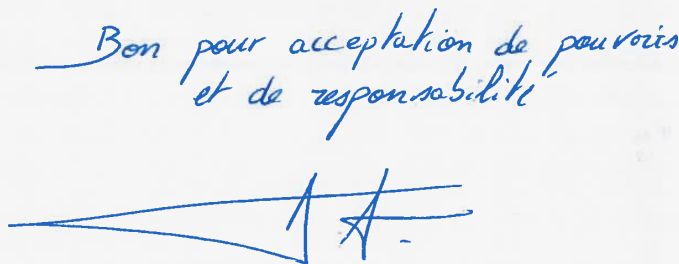 Bon pour acceptation de pouvoirs
et de responsabilité